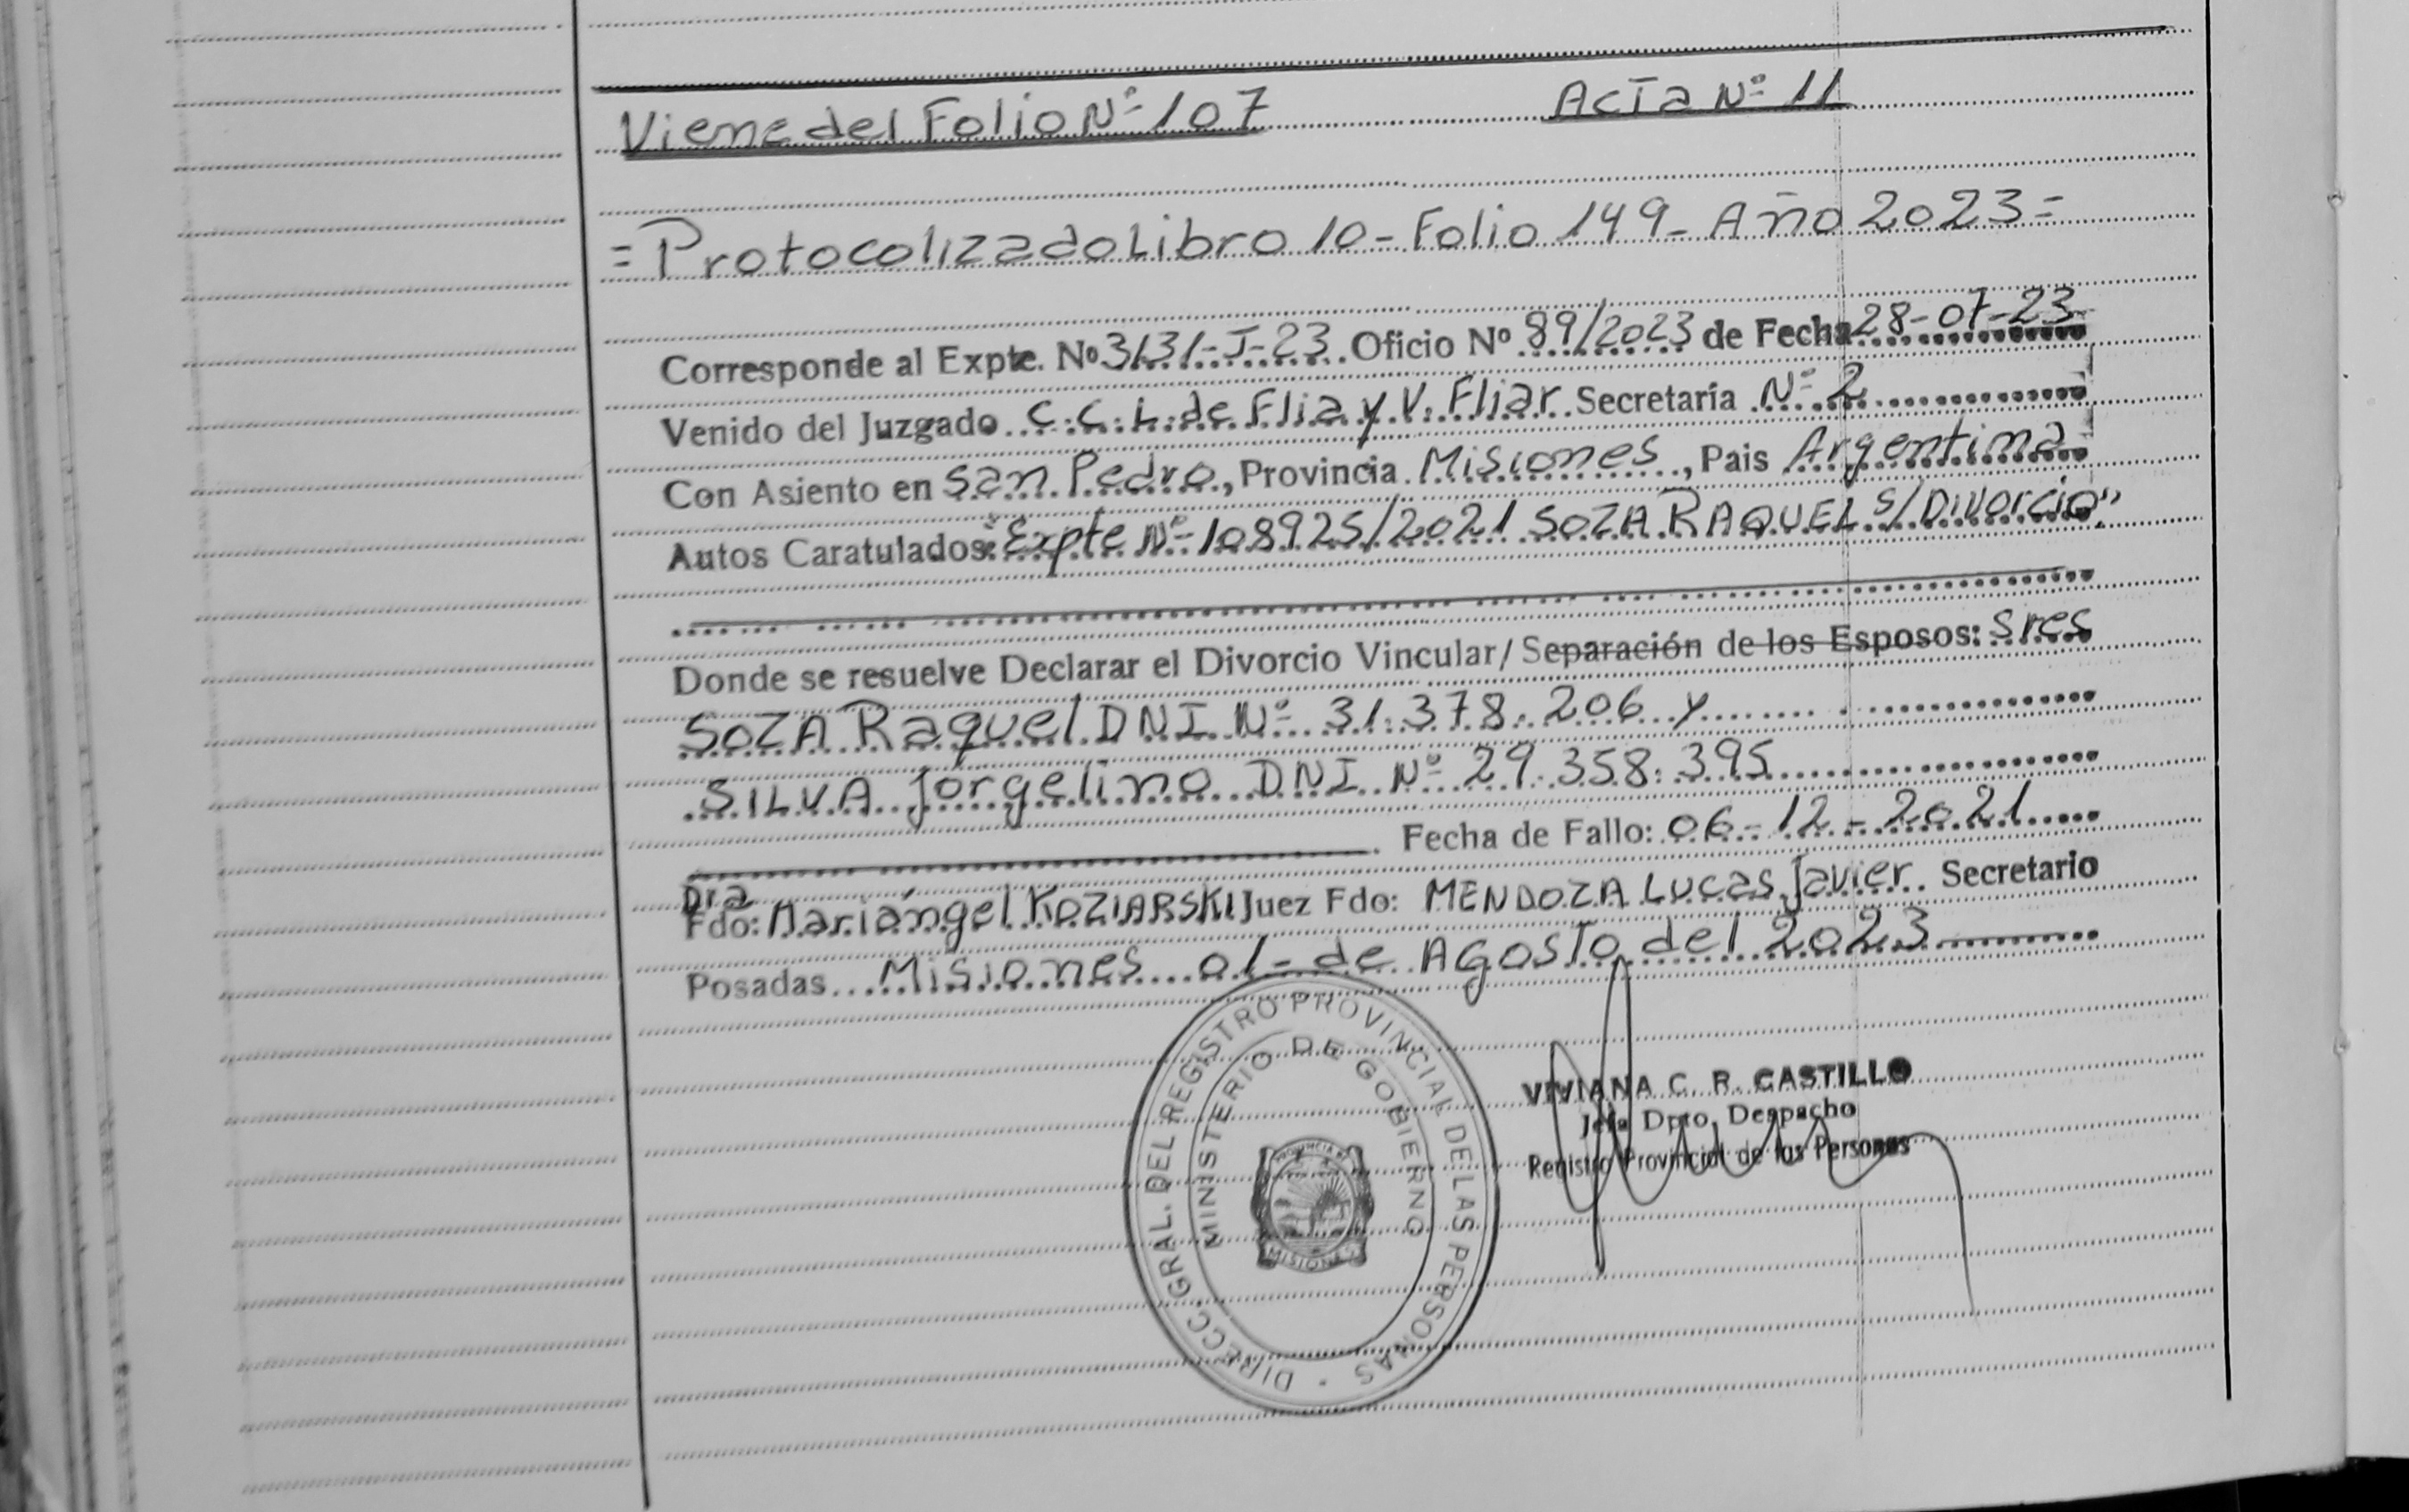 Viene del Folio Nº 107 Acta Nº 11
= Protocolizado Libro 10 - Folio 149 - Año 2023 =
Corresponde al Expte. Nº 3131-J-23 Oficio Nº 89/2023 de Fecha 28-07-23
Venido del Juzgado C.C.L. de Flia y V. Fliar Secretaría Nº 2
Con Asiento en San Pedro, Provincia Misiones, Pais Argentina
Autos Caratulados: "Expte Nº 108925/2021 SOZA RAQUEL s/ Divorcio"
Donde se resuelve Declarar el Divorcio Vincular/ Separación de los Esposos: Sres
SOZA Raquel DNI Nº 31.378.206 y
SILVA Jorgelino DNI Nº 29.358.395
Fecha de Fallo: 06-12-2021
Dra
Fdo: Mariángel KOZIARSKI Juez Fdo: MENDOZA Lucas Javier Secretario
Posadas Misiones 01- de Agosto del 2023
DIRECC. GRAL. DEL REGISTRO PROVINCIAL DE LAS PERSONAS
MINISTERIO DE GOBIERNO
PROVINCIA DE
MISIONES
VIVIANA C. R. CASTILLO
Jefa Dpto. Despacho
Registro Provincial de las Personas